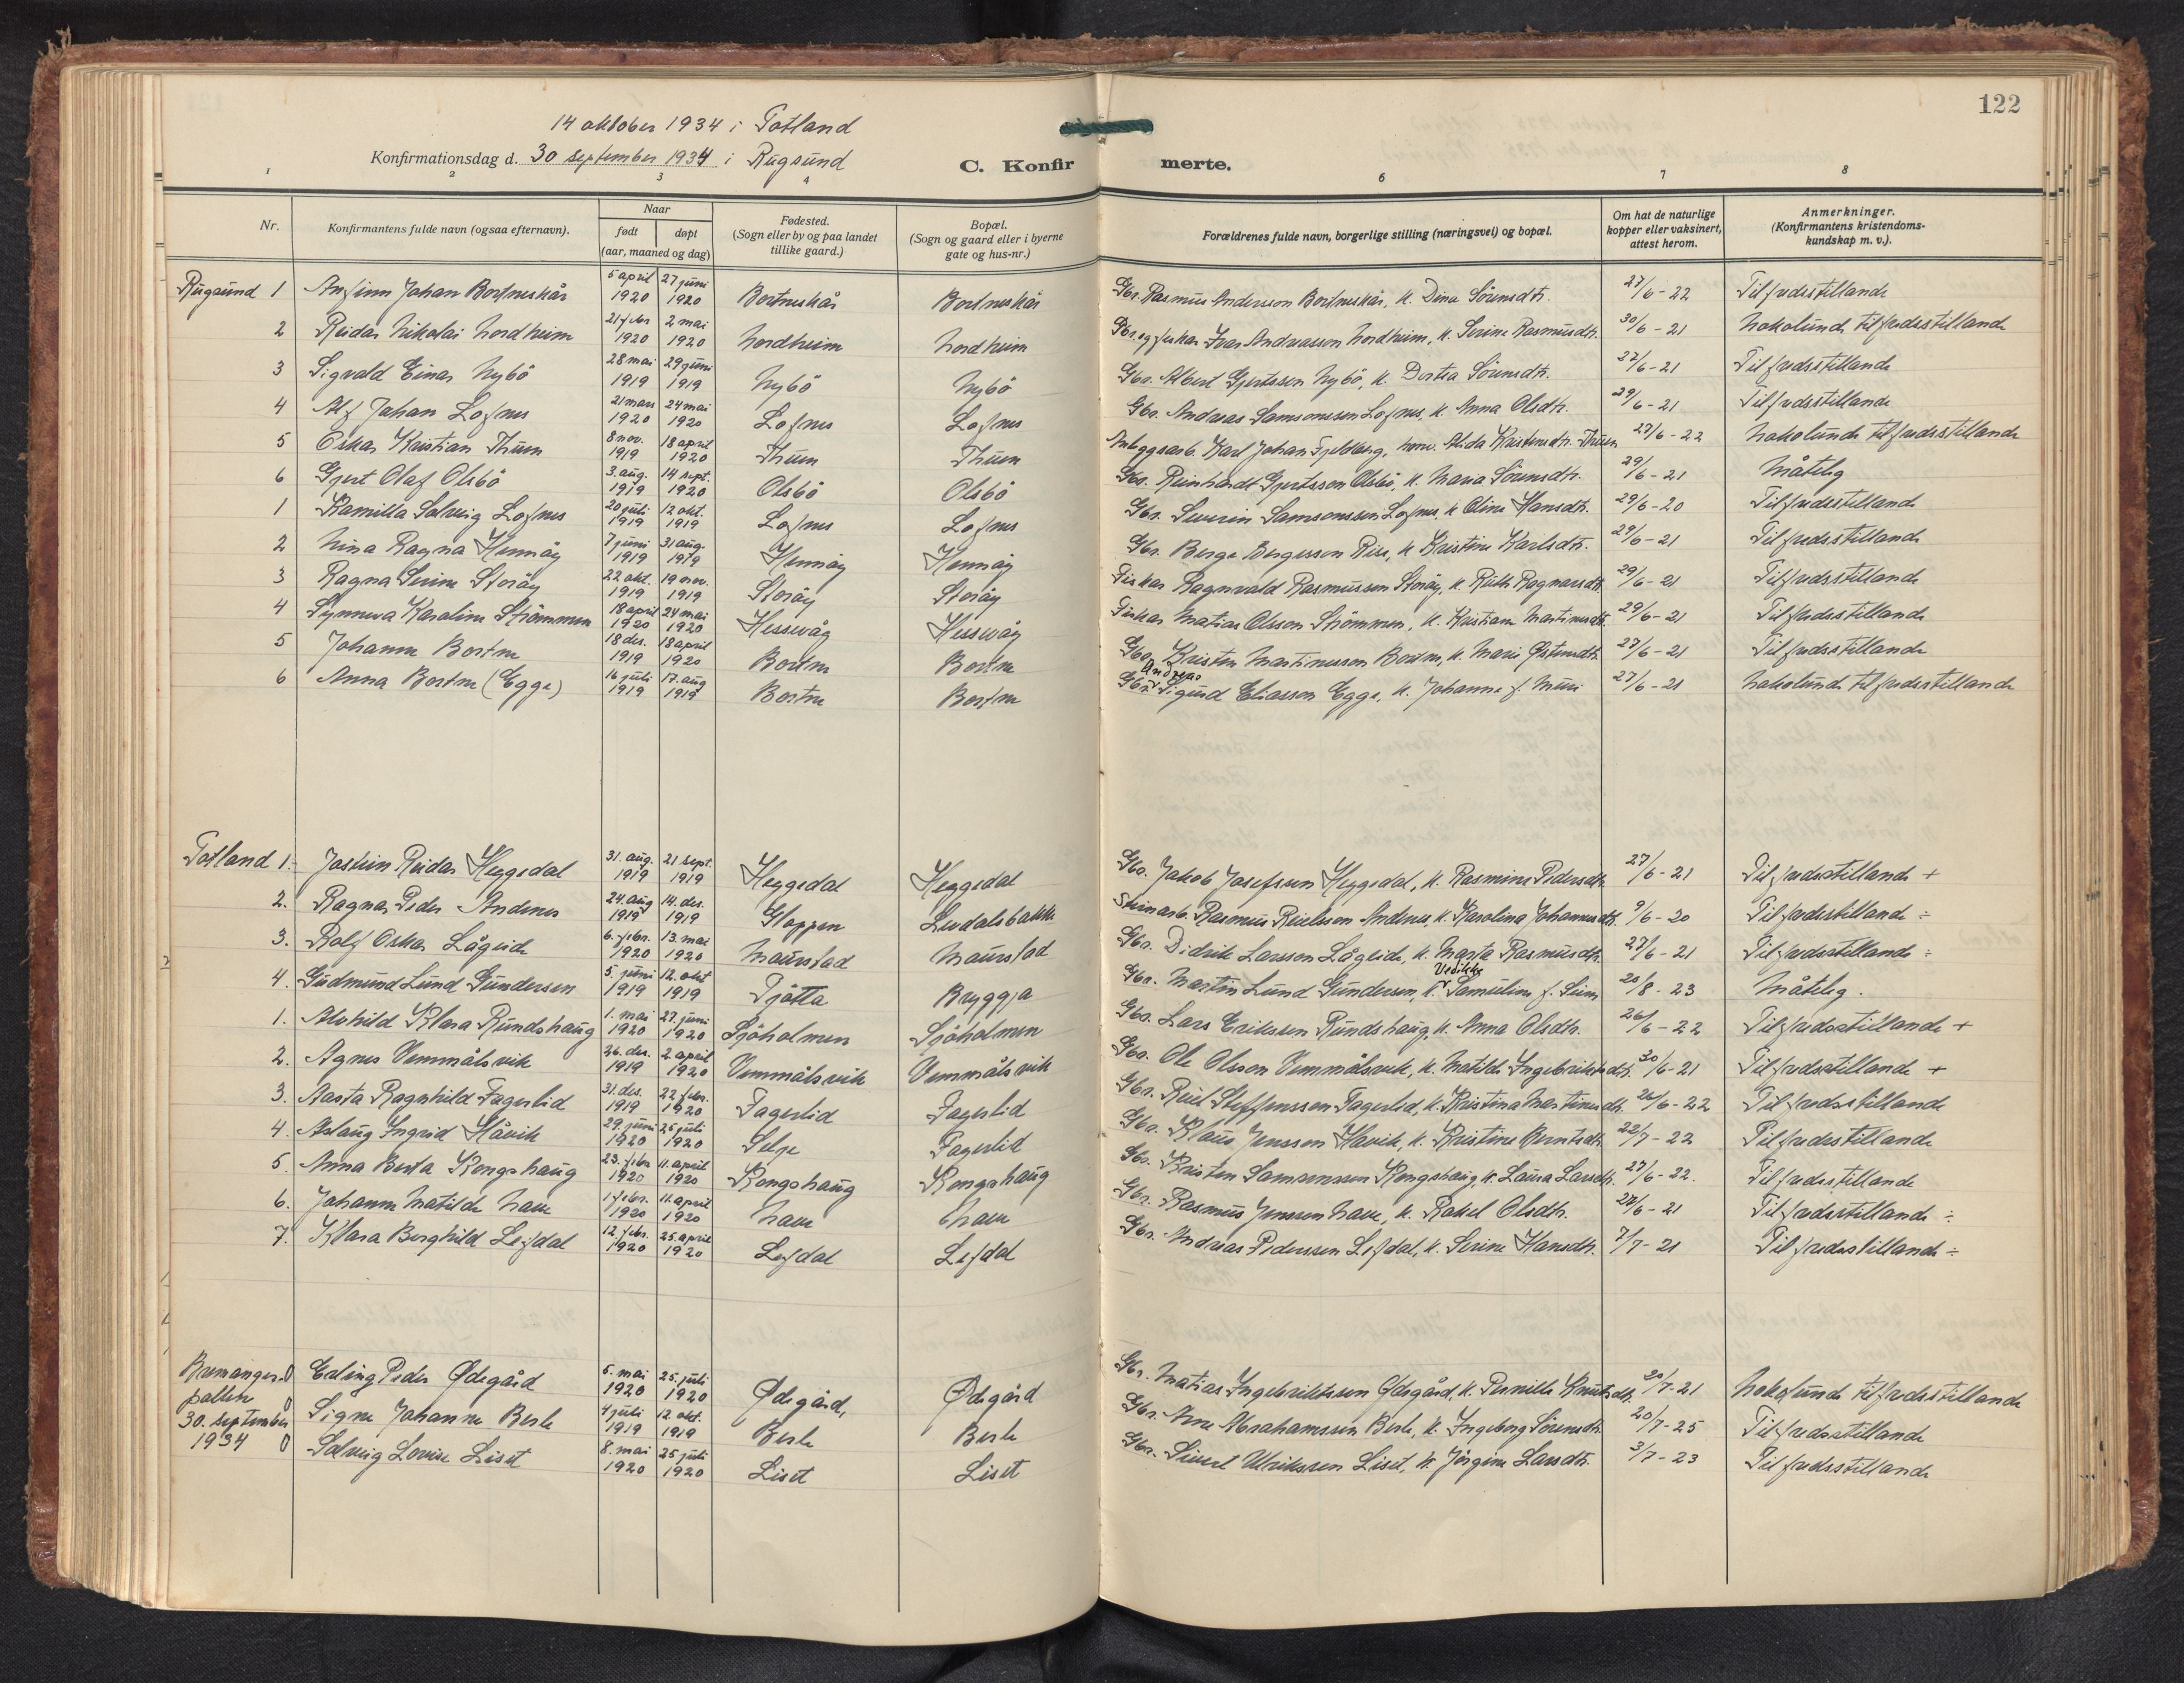 122
14 oktober 1934 i Totland
Konfirmationsdag d. 30 september 1934 i Rugsund
C. Konfirmerte.
1 2 3 4 6 7 8
Nr. Konfirmantens fulde navn (ogsaa efternavn). Naar født døpt (aar, maaned og dag) Fødested. (Sogn eller by og paa landet tillike gaard.) Bopæl. (Sogn og gaard eller i byerne gate og hus-nr.) Forældrenes fulde navn, borgerlige stilling (næringsvei) og bopæl. Om hat de naturlige kopper eller vaksinert, attest herom. Anmerkninger. (Konfirmantens kristendomskundskap m. v.).
Rugsund 1 Anfinn Johan Bortneskår 5 april 1920 27 juni 1920 Bortneskår Bortneskår Gbr. Rasmus Andersson Bortneskår, k. Dina Sörensdtr. 27/6-22 Tilfredsstillande
2 Reidar Nikolai Nordheim 21 febr 1920 2 mai 1920 Nordheim Nordheim Gbr. og fiskar Ivar Andreasson Nordheim, k. Serine Rasmusdtr. 30/6-21 Nokolunde tilfredsstillande
3 Sigvald Einar Nybö 28 mai 1919 29 juni 1919 Nybö Nybö Gbr. Albert Gjertssen Nybö, k. Dortea Sörensdtr. 27/6-21 Tilfredsstillande
4 Alf Johan Lofnes 21 mars 1920 24 mai 1920 Lofnes Lofnes Gbr. Andreas Samsonssen Lofnes, k. Anna Olsdtr. 29/6-21 Tilfredsstillande
5 Oskar Kristian Thuen 8 nov. 1919 18 april 1920 Thuen Thuen Anleggsarb. Karl Johan Fjeldberg, Alida Kristensdtr. Thuen 27/6-22 Nokolunde tilfredsstillande
6 Gjert Olaf Olsbö 3. aug. 1919 14 sept. 1920 Olsbö Olsbö Gbr. Reinhardt Gjertsson Olsbö, k. Maria Sörensdtr. 29/6-21 Måteleg
1 Kamilla Solveig Lofnes 20 juli 1919 12 okt. 1919 Lofnes Lofnes Gbr. Severin Samsonssen Lofnes, k. Oline Hansdtr. 29/6-20 Tilfredsstillande
2 Nina Ragna Hennöy 7 juni 1919 31 aug. 1919 Hennöy Hennöy Gbr. Berge Bergesson Rise, k. Kristine Karlsdtr. 29/6-21 Tilfredsstillande
3 Ragna Serine Storöy 22 okt. 1919 19 nov. 1919 Storöy Storöy Fiskar Ragnvald Rasmussen Storöy, k. Ruth Ragnarsdtr. 29/6-21 Tilfredsstillande
4 Synneva Karoline Strömmen 18 april 1920 24 mai 1920 Hessevåg Hessevåg Fiskar Matias Olsson Strömmen, k. Kristiane Martinusdtr. 29/6-21 Tilfredsstillande
5 Johanne Bortne 18 des. 1919 18 april 1920 Bortne Bortne Gbr. Kristen Martinusson Bortne, k. Marie Østensdtr. 27/6-21 Tilfredsstillande
6 Anna Bortne (Egge) 16 juli 1919 17. aug 1919 Bortne Bortne Gbr. Andreas Sigurd Eliasson Egge, k. Johanne f. Muri 27/6-21 Nokolunde tilfredsstillande
Totland 1. Jostein Reidar Heggedal 31. aug. 1919 21 sept. 1919 Heggedal Heggedal Gbr. Jakob Josefssen Heggedal, k. Rasmine Pedersdtr. 27/6-21 Tilfredsstillande +
2. Ragnar Peder Andenes 24. aug 1919 14. des. 1919 Gloppen Levdalsbakke Steinarb. Rasmus Reielsson Andenes, k. Karolina Johannesdtr. 9/6-20 Tilfredsstillande ÷
3. Rolf Oskar Lågeide 6. febr. 1920 13. mai 1920 Maurstad Maurstad Gbr. Didrik Larsson Lågeide, k. Marta Rasmusdtr. 27/6-21 Tilfredsstillande ÷
4. Gudmund Lund Gundersen 5. juni 1919 12. okt 1919 Tjötta Bryggja Gbr. Martin Lund Gundersen, k. Vedikke Samuline f. Seim 20/8-23 Måteleg.
1. Alvhild Klara Rundshaug 1. mai 1920 27. juni 1920 Sjöholmen Sjöholmen Gbr. Lars Erikssen Rundshaug, k. Anna Olsdtr. 26/6-22 Tilfredsstillande +
2. Agnes Vemmålsvik 26. des. 1919 2 april 1920 Vemmålsvik Vemmålsvik Gbr. Ole Olsson Vemmålsvik, k. Matilde Ingebriktsdtr. 30/6-21 Tilfredsstillande +
3. Aasta Ragnhild Fagerlid 31. des. 1919 22 febr. 1920 Fagerlid Fagerlid Gbr. Reiel Steffenssen Fagerlid, k. Kristina Martinusdtr. 26/6-22 Tilfredsstillande
4. Aslaug Ingrid Håvik 29. juni 1920 25 juli 1920 Selje Fagerlid Gbr. Klaus Jenssen Håvik, k. Kristine Berntsdtr. 22/7-22 Tilfredsstillande
5. Anna Berta Kongshaug 23. febr 1920 11. april 1920 Kongshaug Kongshaug Gbr. Kristen Samsonssen Kongshaug, k. Laura Larsdtr. 27/6-22. Tilfredsstillande
6. Johanne Matilde Nave 1 febr. 1920 11. april 1920 Nave Nave Gbr. Rasmus Jenssen Nave, k. Rakel Olsdtr. 28/6-21 Tilfredsstillande ÷
7. Klara Borghild Lefdal 12. febr. 1920 25. april 1920 Lefdal Lefdal Gbr. Andreas Pederssen Lefdal, k. Serine Hansdtr. 7/7-21 Tilfredsstillande ÷
Bremangerpollen 30. september 1934
0 Erling Peder Ødegård 5. mai 1920 25. juli 1920 Ødegård, Ødegård Gbr. Matias Ingebriktssen Ødegård, k. Pernille Knutsdtr. 20/7-21 Nokolunde tilfredsstillande
0 Signe Johanne Berle 4 juli 1919 12 okt. 1919 Berle Berle Gbr. Arne Abrahamssen Berle, k. Ingeborg Sörensdtr. 20/7-25 Tilfredsstillande
0 Solveig Lovise Liset 8. mai 1920 25 juli 1920 Liset Liset Gbr. Sivert Ulrikssen Liset, k. Jörgine Larsdtr. 3/7-23 Tilfredsstillande